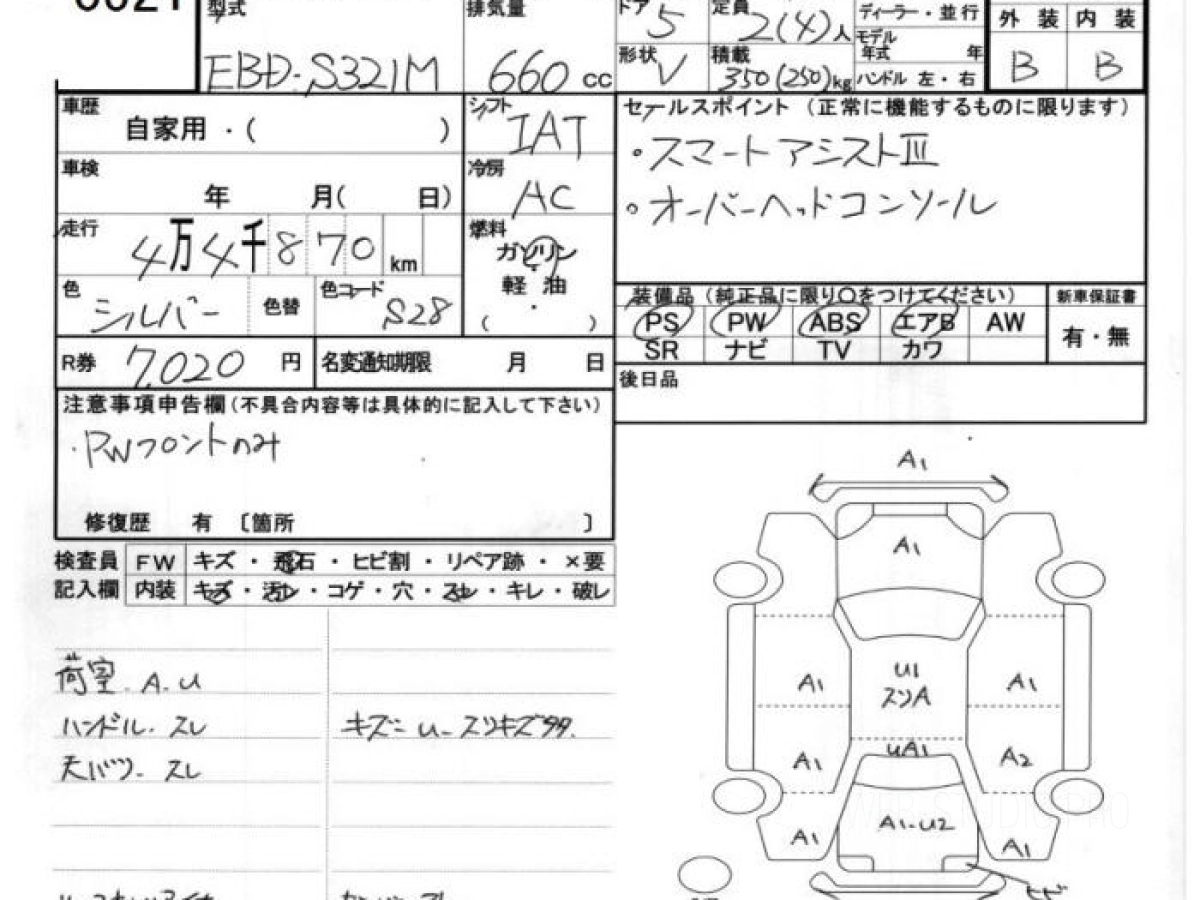 型式
EBD-S321M
排気量
660 cc
ドア
5
形状
V
定員
2(4)人
積載
350(250)kg
ディーラー・並行
モデル年式 年
ハンドル 左・右
外装 内装
B B
車歴
自家用・( )
シフト
IAT
車検
年 月( 日)
冷房
AC
走行
4万4千870 km
燃料
ガソリン
軽油
・
( )
色
シルバー
色替
色コード
S28
R券 7,020 円
名変通知期限 月 日
セールスポイント(正常に機能するものに限ります)
・スマートアシストⅢ
・オーバーヘッドコンソール
装備品(純正品に限り〇をつけてください)
新車保証書
PS PW ABS エアB AW
有・無
SR ナビ TV カワ
後日品
注意事項申告欄(不具合内容等は具体的に記入して下さい)
・PWフロントのみ
修復歴 有 〔箇所 〕
検査員
記入欄
FW キズ・飛石・ヒビ割・リペア跡・×要
内装 キズ・汚レ・コゲ・穴・スレ・キレ・破レ
荷室.A.U
ハンドル.スレ
キズ=U-スリキズ
A1
A1
A1
U1
スリA
A1
A1
UA1
A2
A1
A1-U2
A1